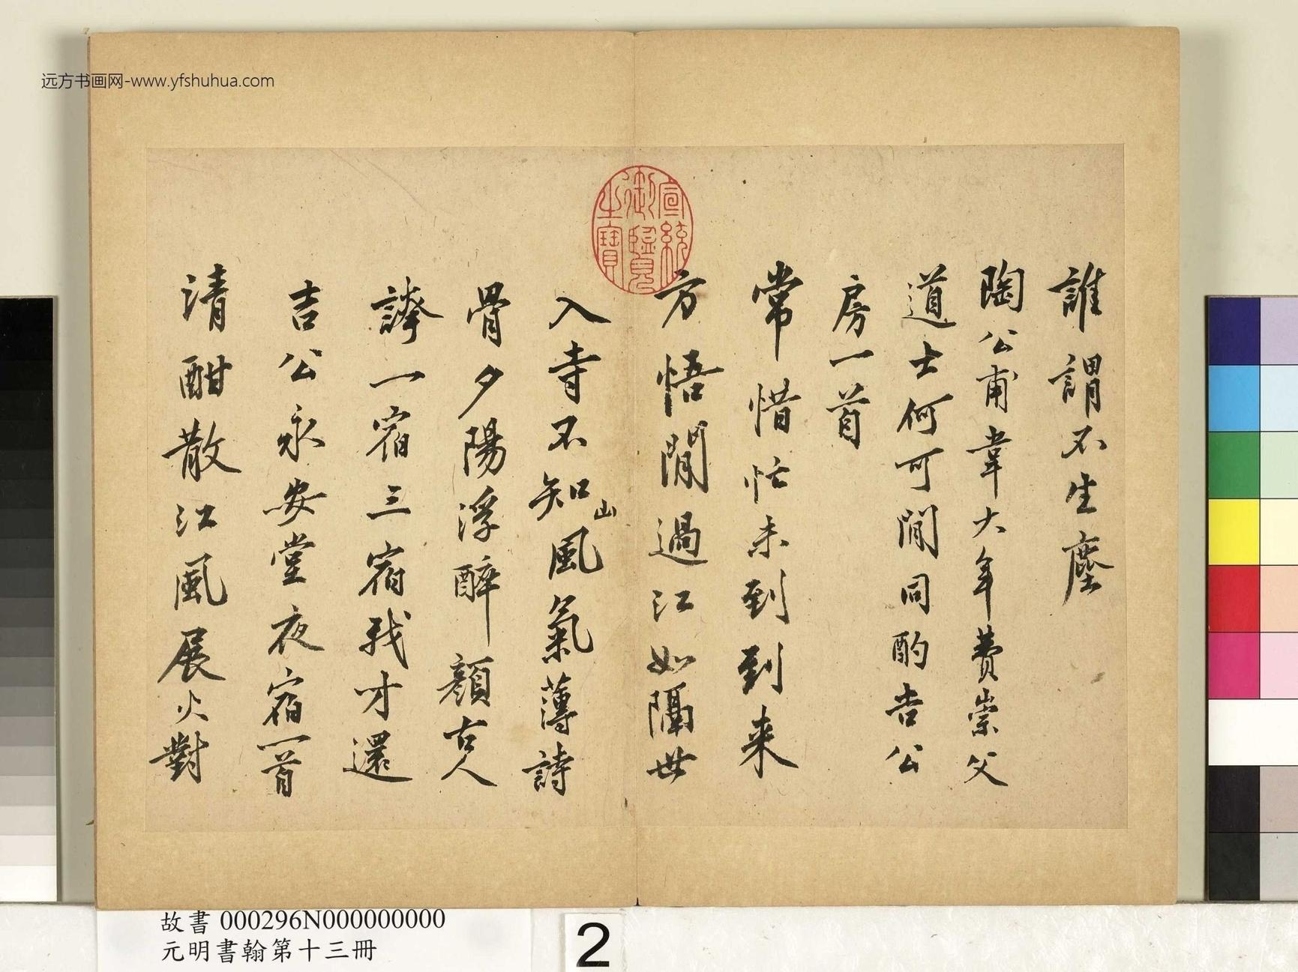 远方书画网-www.yfshuhua.com
宣統御覽之寶
誰謂不生塵
陶公甫韋大年費崇父
道士何可閒同酌吉公
房一首
常惜忙未到到来
方悟閒過江如隔世
入寺不知山風氣薄詩
骨夕陽浮醉顏古人
一宿三宿我才還
吉公永安堂夜宿一首
清酣散江風展火對
故書 000296N000000000
元明書翰第十三冊
2